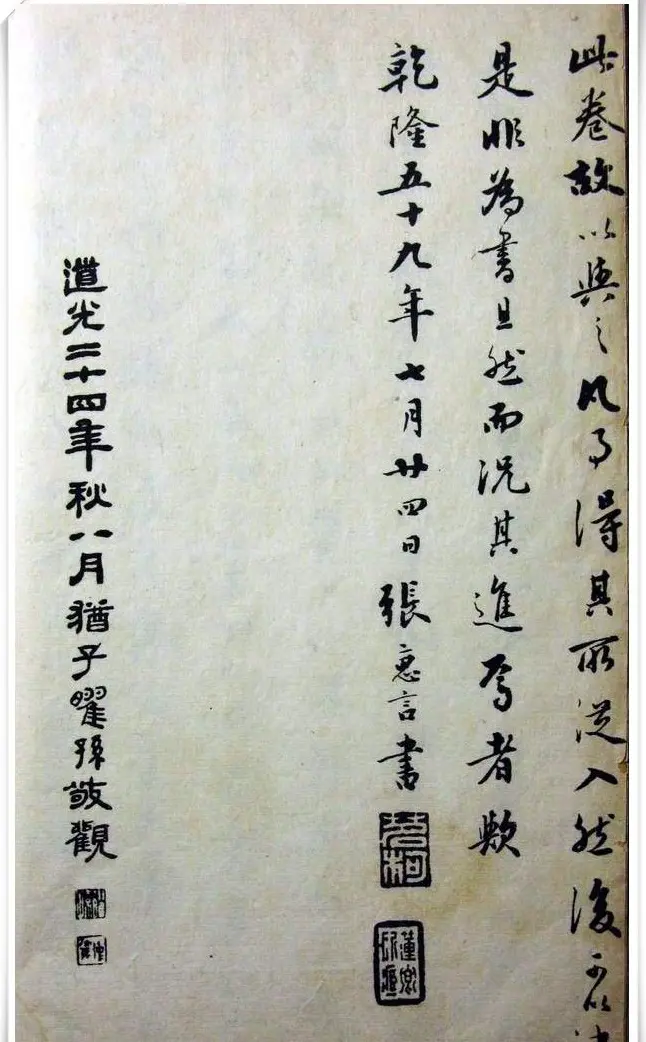 此卷故以與之凡事得其所從入然後可以決
是非為書且然而況其進焉者歟
乾隆五十九年七月廿四日張惠言書
道光二十四年秋八月猶子曜孫敬觀